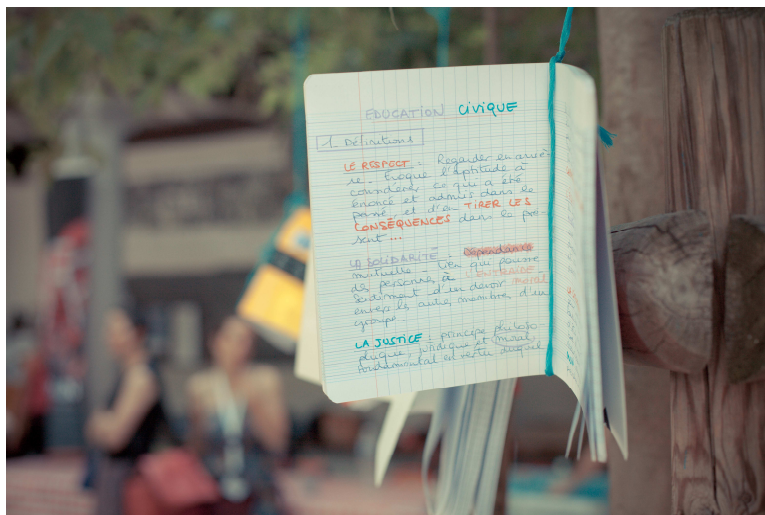 EDUCATION CIVIQUE
1. Définitions
LE RESPECT = Regarder en arriè-
re. Evoque l'aptitude à
considérer ce qui a été
énoncé et admis dans le
passé, et d'en TIRER LES
CONSÉQUENCES dans le pré-
sent ...
LA SOLIDARITÉ = Dépendance
mutuelle - lien qui pousse
des personnes à L'ENTRAIDE
Sentiment d'un devoir moral
envers les autres membres d'un
groupe.
LA JUSTICE = principe philoso
phique, juridique et moral,
fondamental en vertu duquel